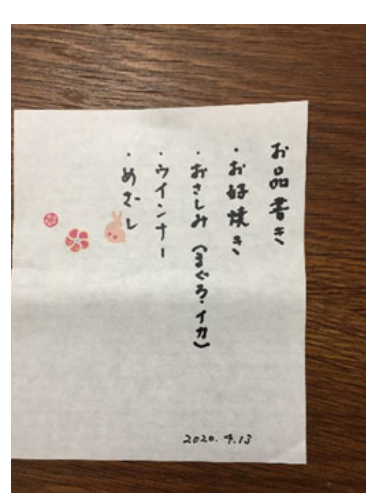 お品書き
・お好焼き
・おさしみ(まぐろ・イカ)
・ウインナー
・めざし
2020.4.13